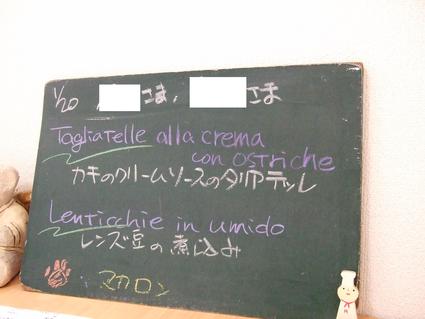 1/20 さま、 さま
Tagliatelle alla crema
con ostriche
カキのクリームソースのタリアテッレ
Lenticchie in umido
レンズ豆の煮込み
マカロン